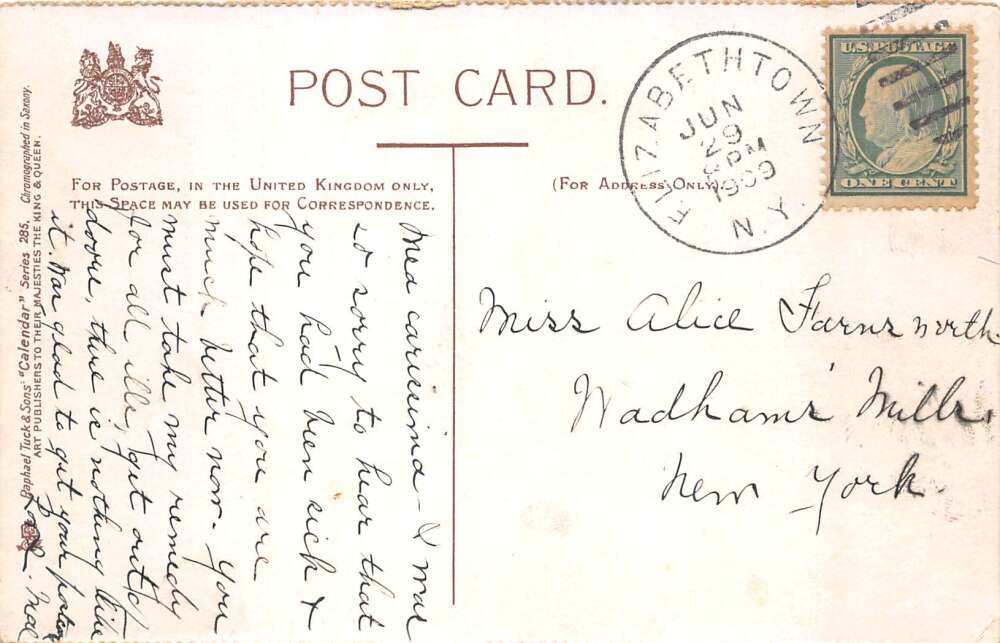 POST CARD.
FOR POSTAGE, IN THE UNITED KINGDOM ONLY,
THIS SPACE MAY BE USED FOR CORRESPONDENCE.
(FOR ADDRESS ONLY).
ELIZABETHTOWN
JUN
29
PM
1909
N.Y.
U.S. POSTAGE
ONE CENT
Raphael Tuck & Sons' "Calendar" Series 285. Chromographed in Saxony.
ART PUBLISHERS TO THEIR MAJESTIES THE KING & QUEEN.
Mea carissima - I was
so sorry to hear that
you had been sick &
hope that you are
much better now. You
must take my remedy
for all ills, "get out of
doors, there is nothing like
it. Was glad to get your
Miss Alice Farnsworth
Wadhams' Mills,
New York.